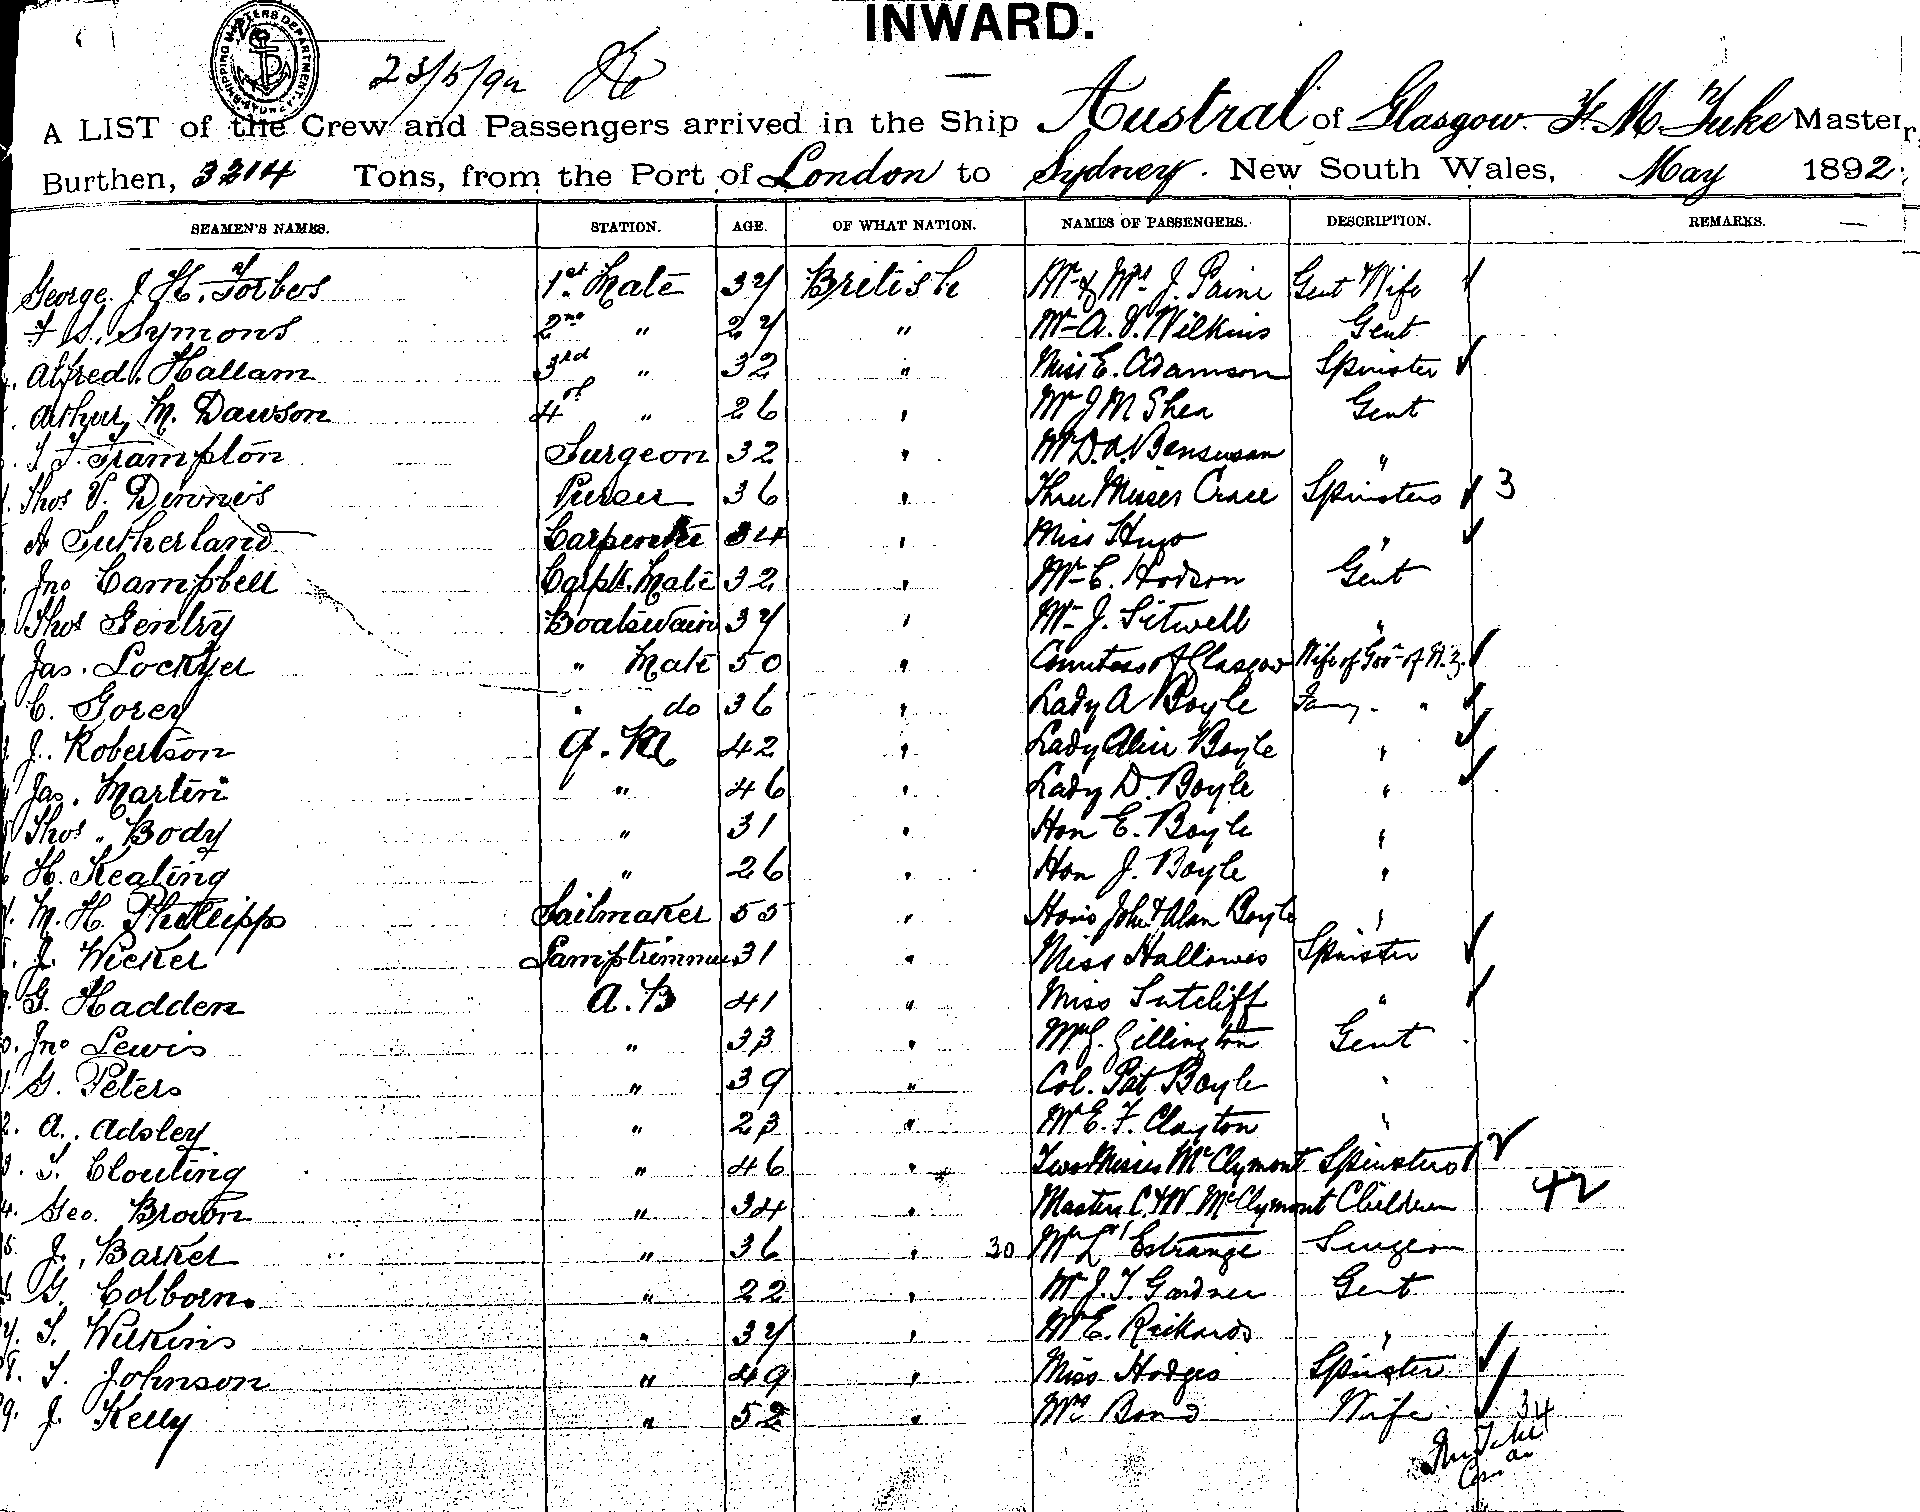 INWARD.
23/5/92
A LIST of the Crew and Passengers arrived in the Ship Austral of Glasgow. F. M. Tuke Master,
Burthen, 3214 Tons, from the Port of London to Sydney. New South Wales, May 1892.
SEAMEN'S NAMES. STATION. AGE. OF WHAT NATION. NAMES OF PASSENGERS. DESCRIPTION. REMARKS.
George J. H. Forbes 1st Mate 37 British Mr & Mrs J. Paine Gent Wife
F S. Symons 2nd " 27 " Mr A. V. Wilkins Gent
Alfred Hallam 3rd " 32 " Miss E. Adamson Spinster
Arthur M. Dawson 4th " 26 " Mr J M Shea Gent
T. F. Frampton Surgeon 32 " Mr D. A. Bensusan "
Thos V. Dinnis Purser 36 " Three Misses Crace Spinsters 3
A Sutherland Carpenter 34 " Miss Hugo "
Jno Campbell Carpts. Mate 32 " Mr C. Hodson Gent
Thos Gentry Boatswain 37 " Mr J. Sitwell "
Jas. Lockyer " Mate 50 " Countess of Glasgow Wife of Govr of N.Z.
C. Gorey " do 36 " Lady A Boyle Famy. "
J. Robertson Q. M 42 " Lady Alice Boyle "
Jas. Martin " 46 " Lady D. Boyle "
Thos. Body " 31 " Hon E. Boyle "
H. Keating " 26 " Hon J. Boyle "
M. H. Phillipps Sailmaker 55 " Hons John & Alan Boyle "
J. Wicker Lamptrimmer 31 " Miss Hallowes Spinster
G. Hadden A. B 41 " Miss Sutcliff "
Jno Lewis " 33 " Mr J. Gillington Gent
G. Peters " 39 " Col. Pat Boyle "
A. Adsley " 23 " Mr E. F. Clayton "
T. Clouting " 46 " Two Misses McClymont Spinsters 2
Geo. Brown " 34 " Masters C & W McClymont Children 42
J. Barker " 36 " 30 Mr L'Estrange Surgeon
G. Colborn. " 22 " Mr J. T. Gardner Gent
T. Wilkins " 37 " Mr E. Rickards "
T. Johnson " 49 " Miss Hodges Spinster
J. Kelly " 52 " Mrs Bond Wife 34